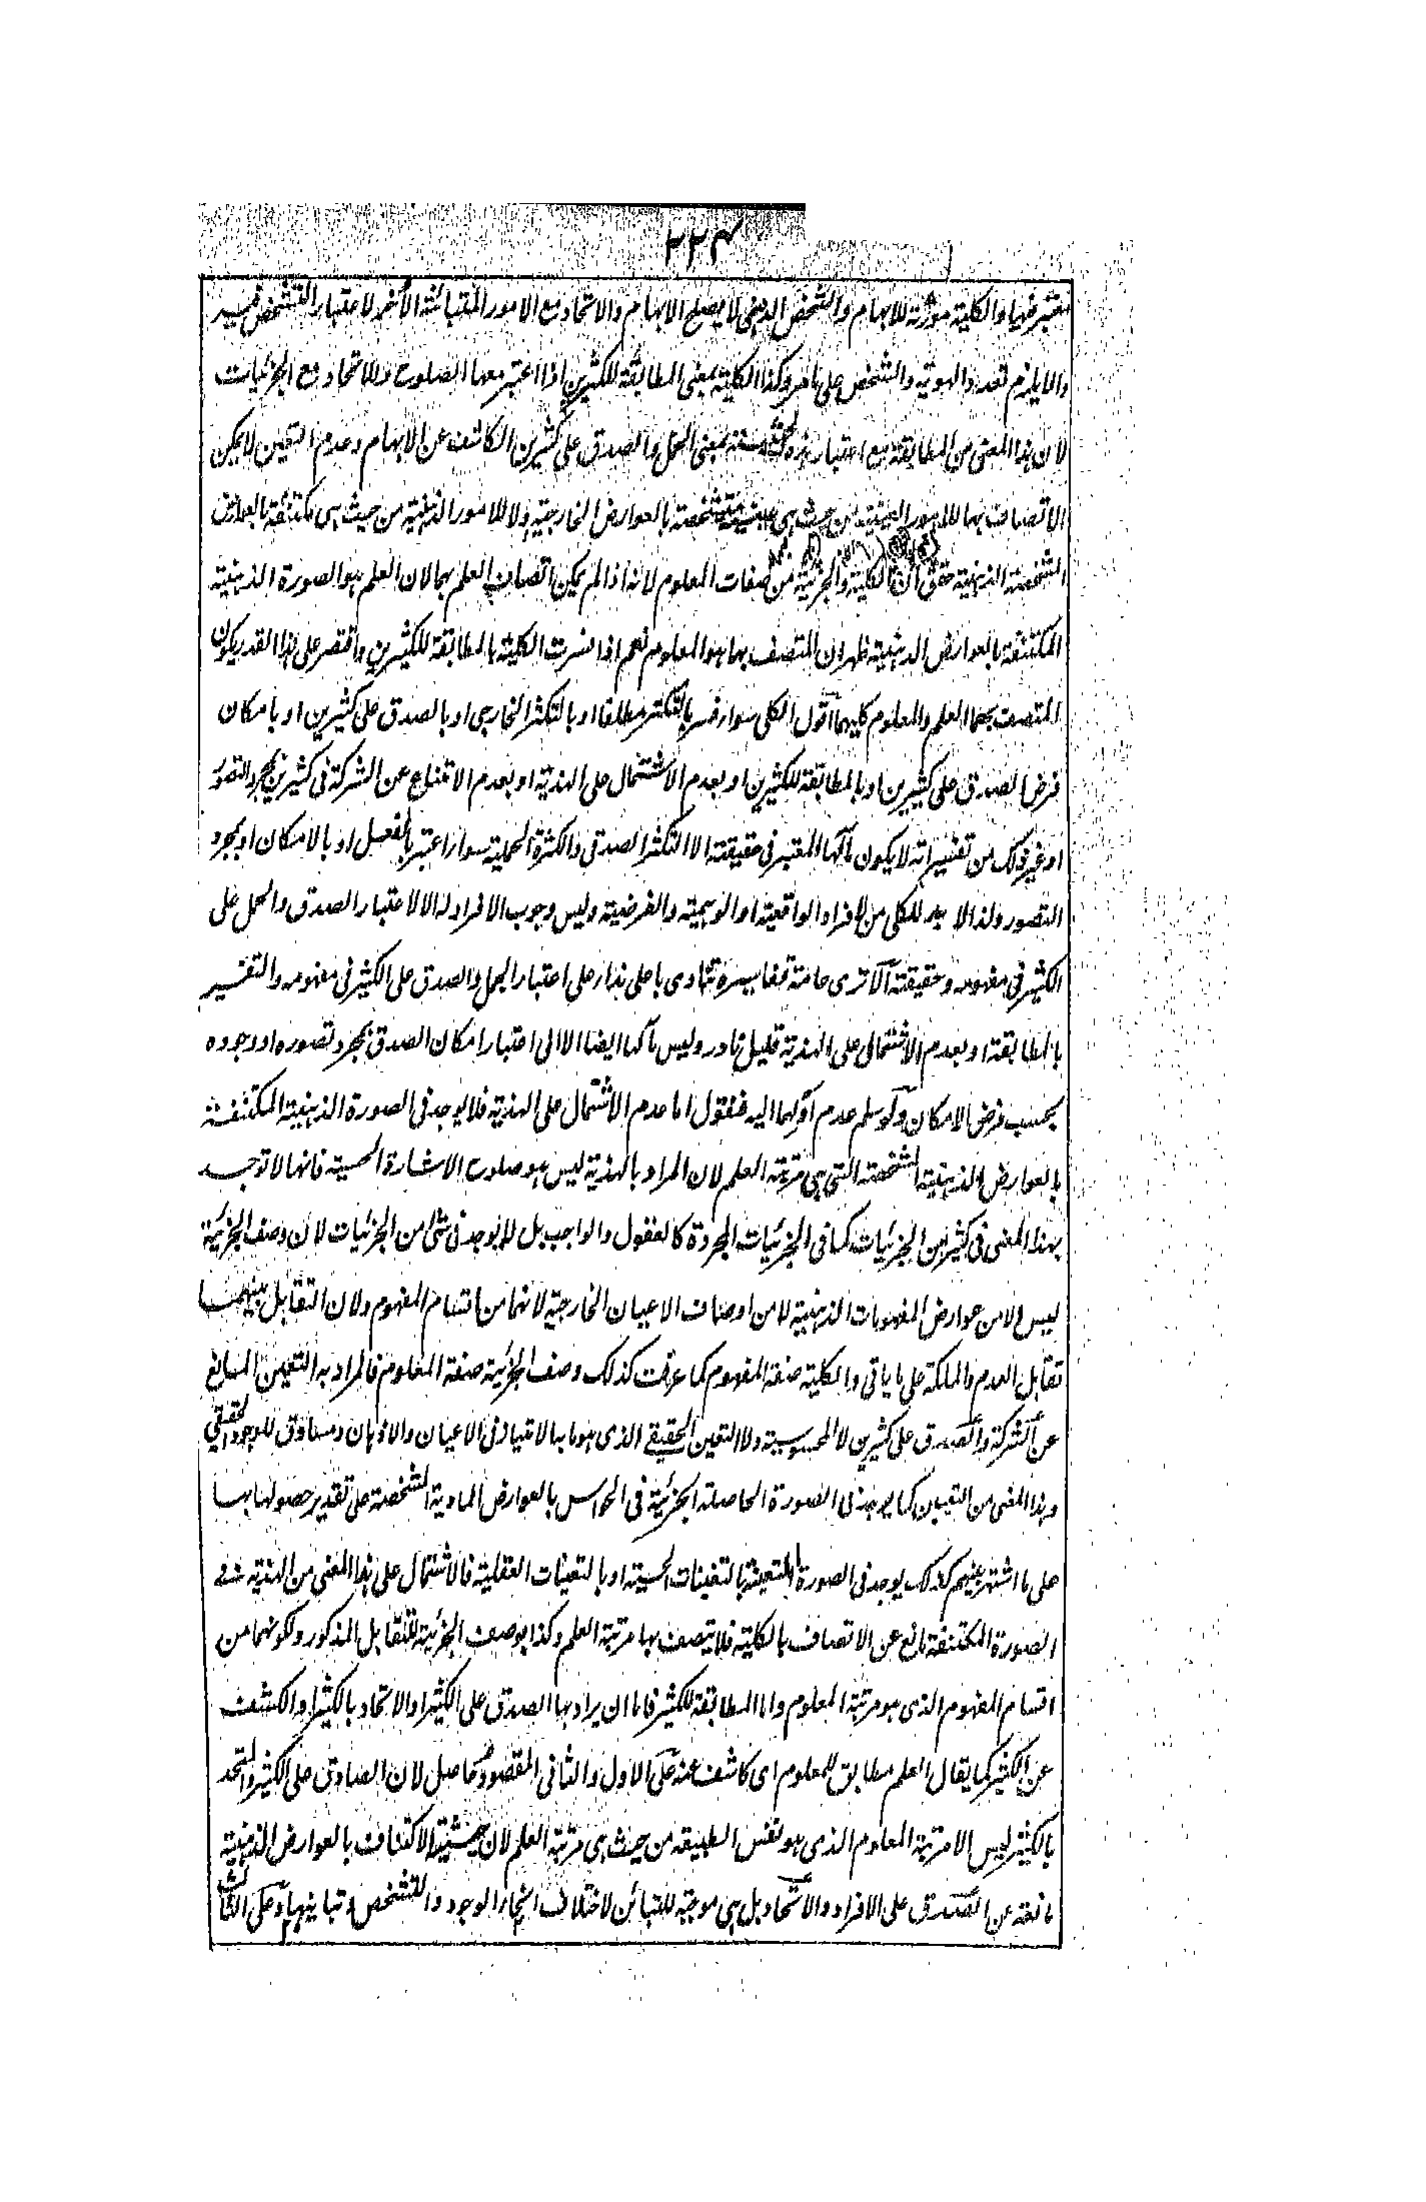 ٢٢٣
معتبر فيها والكلية مورثة للابهام والشخص الذهني لا يصلح الابهام والاتحاد مع الامور المتبائنة الأخر لاعتبار التشخص فيه
والا يلزم تعدد الهوية والتشخص على ما مر وكذا الكلية بمعنى المطابقة للكثيرين اذا اعتبر معها الصلوح والاتحاد مع الجزئيات
لان هذا المعنى من المطابقة مع اعتبار هذه الحيثية بمعنى الحمل والصدق على كثيرين الكاشف عن الابهام وعدم التعين لا يمكن
الاتصاف بها للامور العينية من حيث هي عينية متشخصة بالعوارض الخارجية ولا للامور الذهنية من حيث هي مكتنفة بالعوارض
الشخصية الذهنية حقق ان الكلية والجزئية من صفات المعلوم لانه اذا لم يمكن اتصاف العلم بهما لان العلم هو الصورة الذهنية
المكتنفة بالعوارض الذهنية ظهر ان المتصف بهما هو المعلوم نعم اذا فسرت الكلية بالمطابقة للكثيرين واقتصر على هذا القدر يكون
المتصف بهما العلم والمعلوم كليهما اقول الكلي سواء فسر بالتكثر مطلقا او بالتكثر الخارجي او بالصدق على كثيرين او بامكان
فرض الصدق على كثيرين او بالمطابقة للكثيرين او بعدم الاشتمال على الهذية او بعدم الامتناع عن الشركة في كثيرين بمجرد التصور
او غير ذلك من تفسيراته لا يكون مآلها المعتبر في حقيقته الا التكثر الصدقي والكثرة الحملية سواء اعتبر بالفعل او بالامكان او بمجرد
التصور ولذا لا بد للكلي من الافراد الواقعية او الوهمية والفرضية وليس وجوب الافراد له الا لاعتبار الصدق والحمل على
الكثير في مفهومه وحقيقته ألا ترى عامة تفاسيره تنادى باعلى نداء على اعتبار الحمل والصدق على الكثير في مفهومه والتفسير
بالمطابقة او بعدم الاشتمال على الهذية قليل نادر وليس مآلها ايضا الا الى اعتبار امكان الصدق بمجرد تصوره او وجوده
بحسب فرض الامكان ولو سلم عدم اولهما اليه فنقول اما عدم الاشتمال على الهذية فلا يوجد في الصورة الذهنية المكتنفة
بالعوارض الذهنية الشخصية التي هي مرتبة العلم لان المراد بالهذية ليس هو صلوح الاشارة الحسية فانها لا توجد
بهذا المعنى في كثير من الجزئيات كما في الجزئيات المجردة كالعقول والواجب بل لا يوجد في شئ من الجزئيات لان وصف الجزئية
ليس الا من عوارض المفهومات الذهنية لا من اوصاف الاعيان الخارجية لانهما من اقسام المفهوم ولان التقابل بينهما
تقابل العدم والملكة على ما ياتي والكلية صفة المفهوم كما عرفت كذلك وصف الجزئية صفة المعلوم فالمراد به التعين المانع
عن الشركة والصدق على كثيرين لا المحسوسية ولا التعين الحقيقي الذي هو ما به الامتياز في الاعيان والاذهان ومساوق للوجود الحقيقي
وهذا المعنى من التعين كما يوجد في الصورة الحاصلة الجزئية في الحواس بالعوارض المادية الشخصية على تقدير حصولها بها
على ما اشتهر بينهم كذلك يوجد في الصورة المتعينة بالتعينات الحسية او بالتعينات العقلية فالاشتمال على هذا المعنى من الهذية في
الصورة المكتنفة مانع عن الاتصاف بالكلية فلا يتصف بها مرتبة العلم وكذا بوصف الجزئية للتقابل المذكور ولكونهما من
اقسام المفهوم الذي هو مرتبة المعلوم واما المطابقة للكثير فاما ان يراد بها الصدق على الكثير او الاتحاد بالكثير او الكشف
عن الكثير كما يقال العلم مطابق للمعلوم اى كاشف عنه على الاول والثاني المقصود حاصل لان الصادق على الكثير والمتحد
بالكثير ليس الا مرتبة المعلوم الذي هو نفس الطبيعة من حيث هي مرتبة العلم لان حيثية الاكتناف بالعوارض الذهنية
مانعة عن الصدق على الافراد والاتحاد بل هي موجبة للتبائن لاختلاف انحاء الوجود والتشخص وتباينها وعلى الثالث